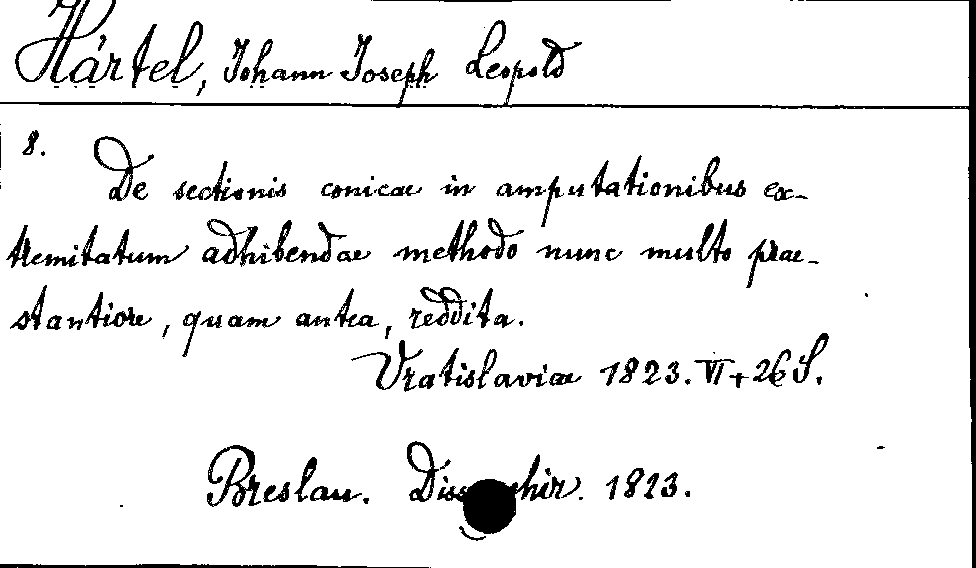 Härtel, Johann Joseph Leopold
8. De sectionis conicae in amputationibus ex-
tremitatum adhibendae methodo nunc multo prae-
stantiore, quam antea, reddita.
Vratislaviae 1823. VI + 26 S.
Breslau. chir. 1823.